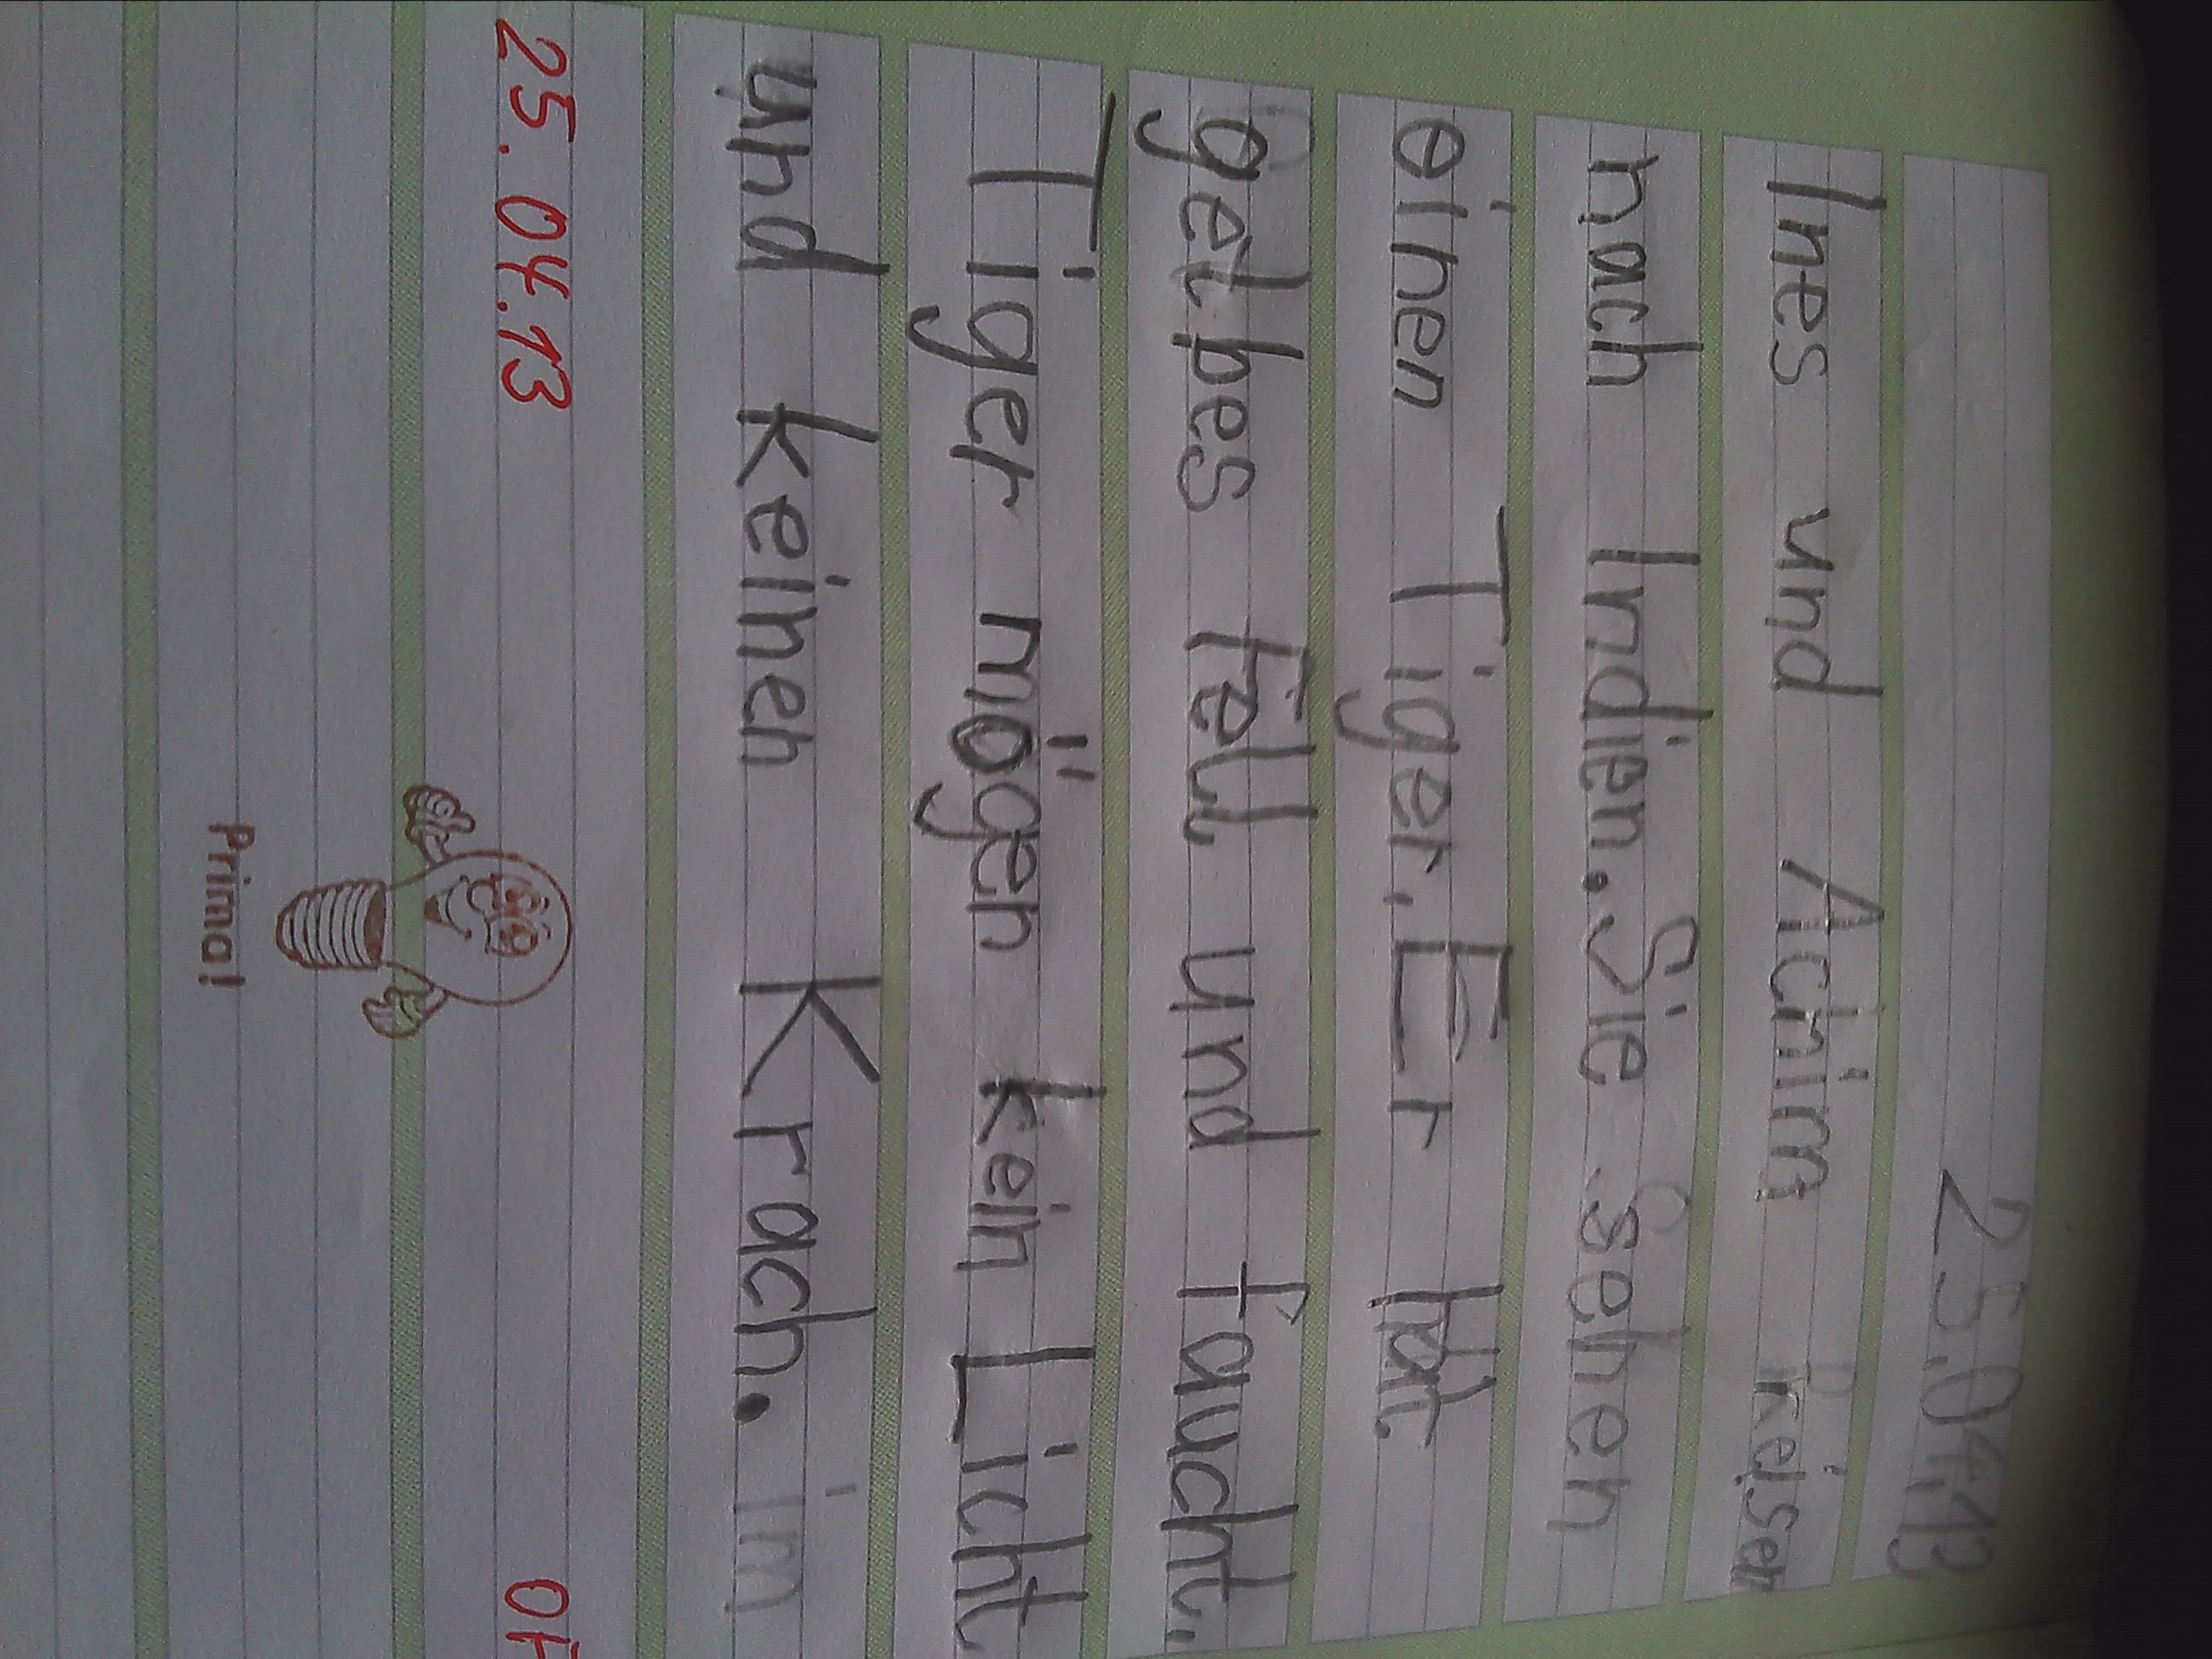 25.04.13
Ines und Achim reisen
nach Indien. Sie sehen
einen Tiger. Er hat
gelbes Fell und faucht.
Tiger mögen kein Licht
und keinen Krach. im
25.04.13 0F
Prima!